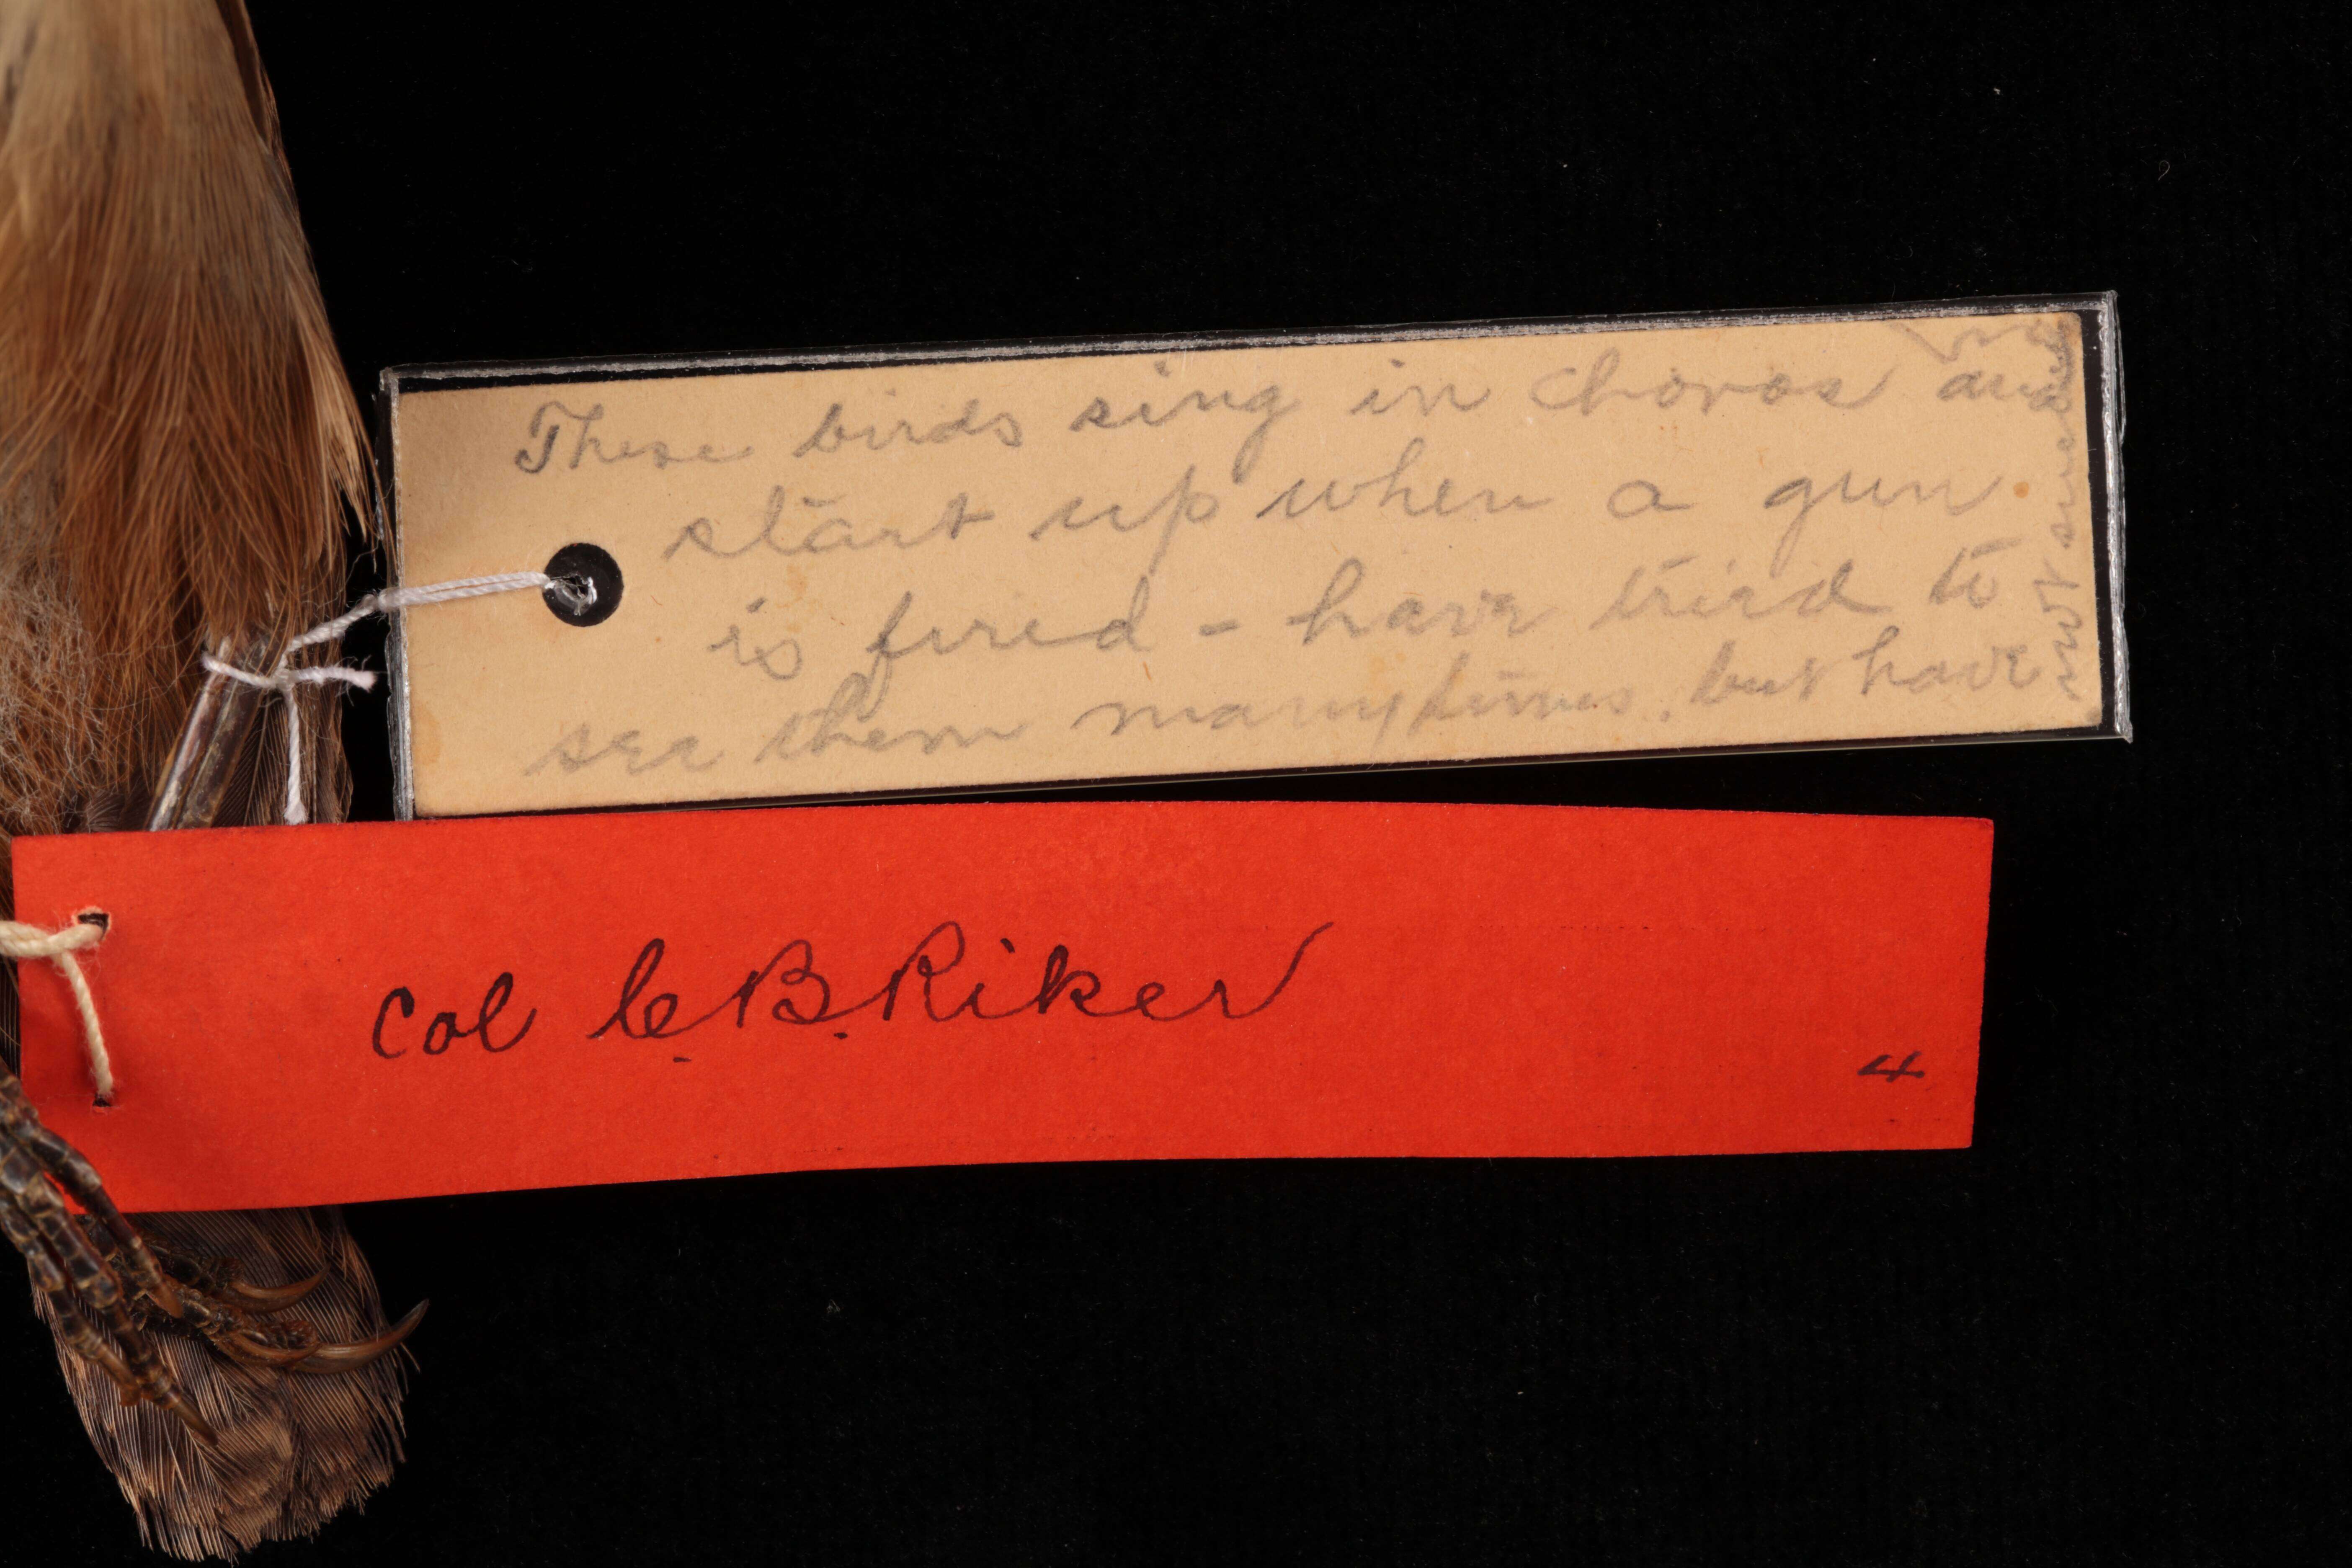 These birds sing in choros and
start up when a gun
is fired - have tried to
see them many times. but have
not
Col C. B. Riker
4